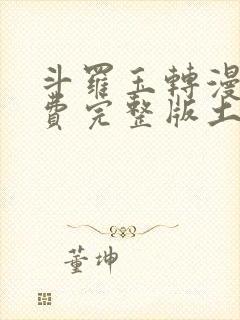 斗羅玉轉漫
費完整版土
董坤